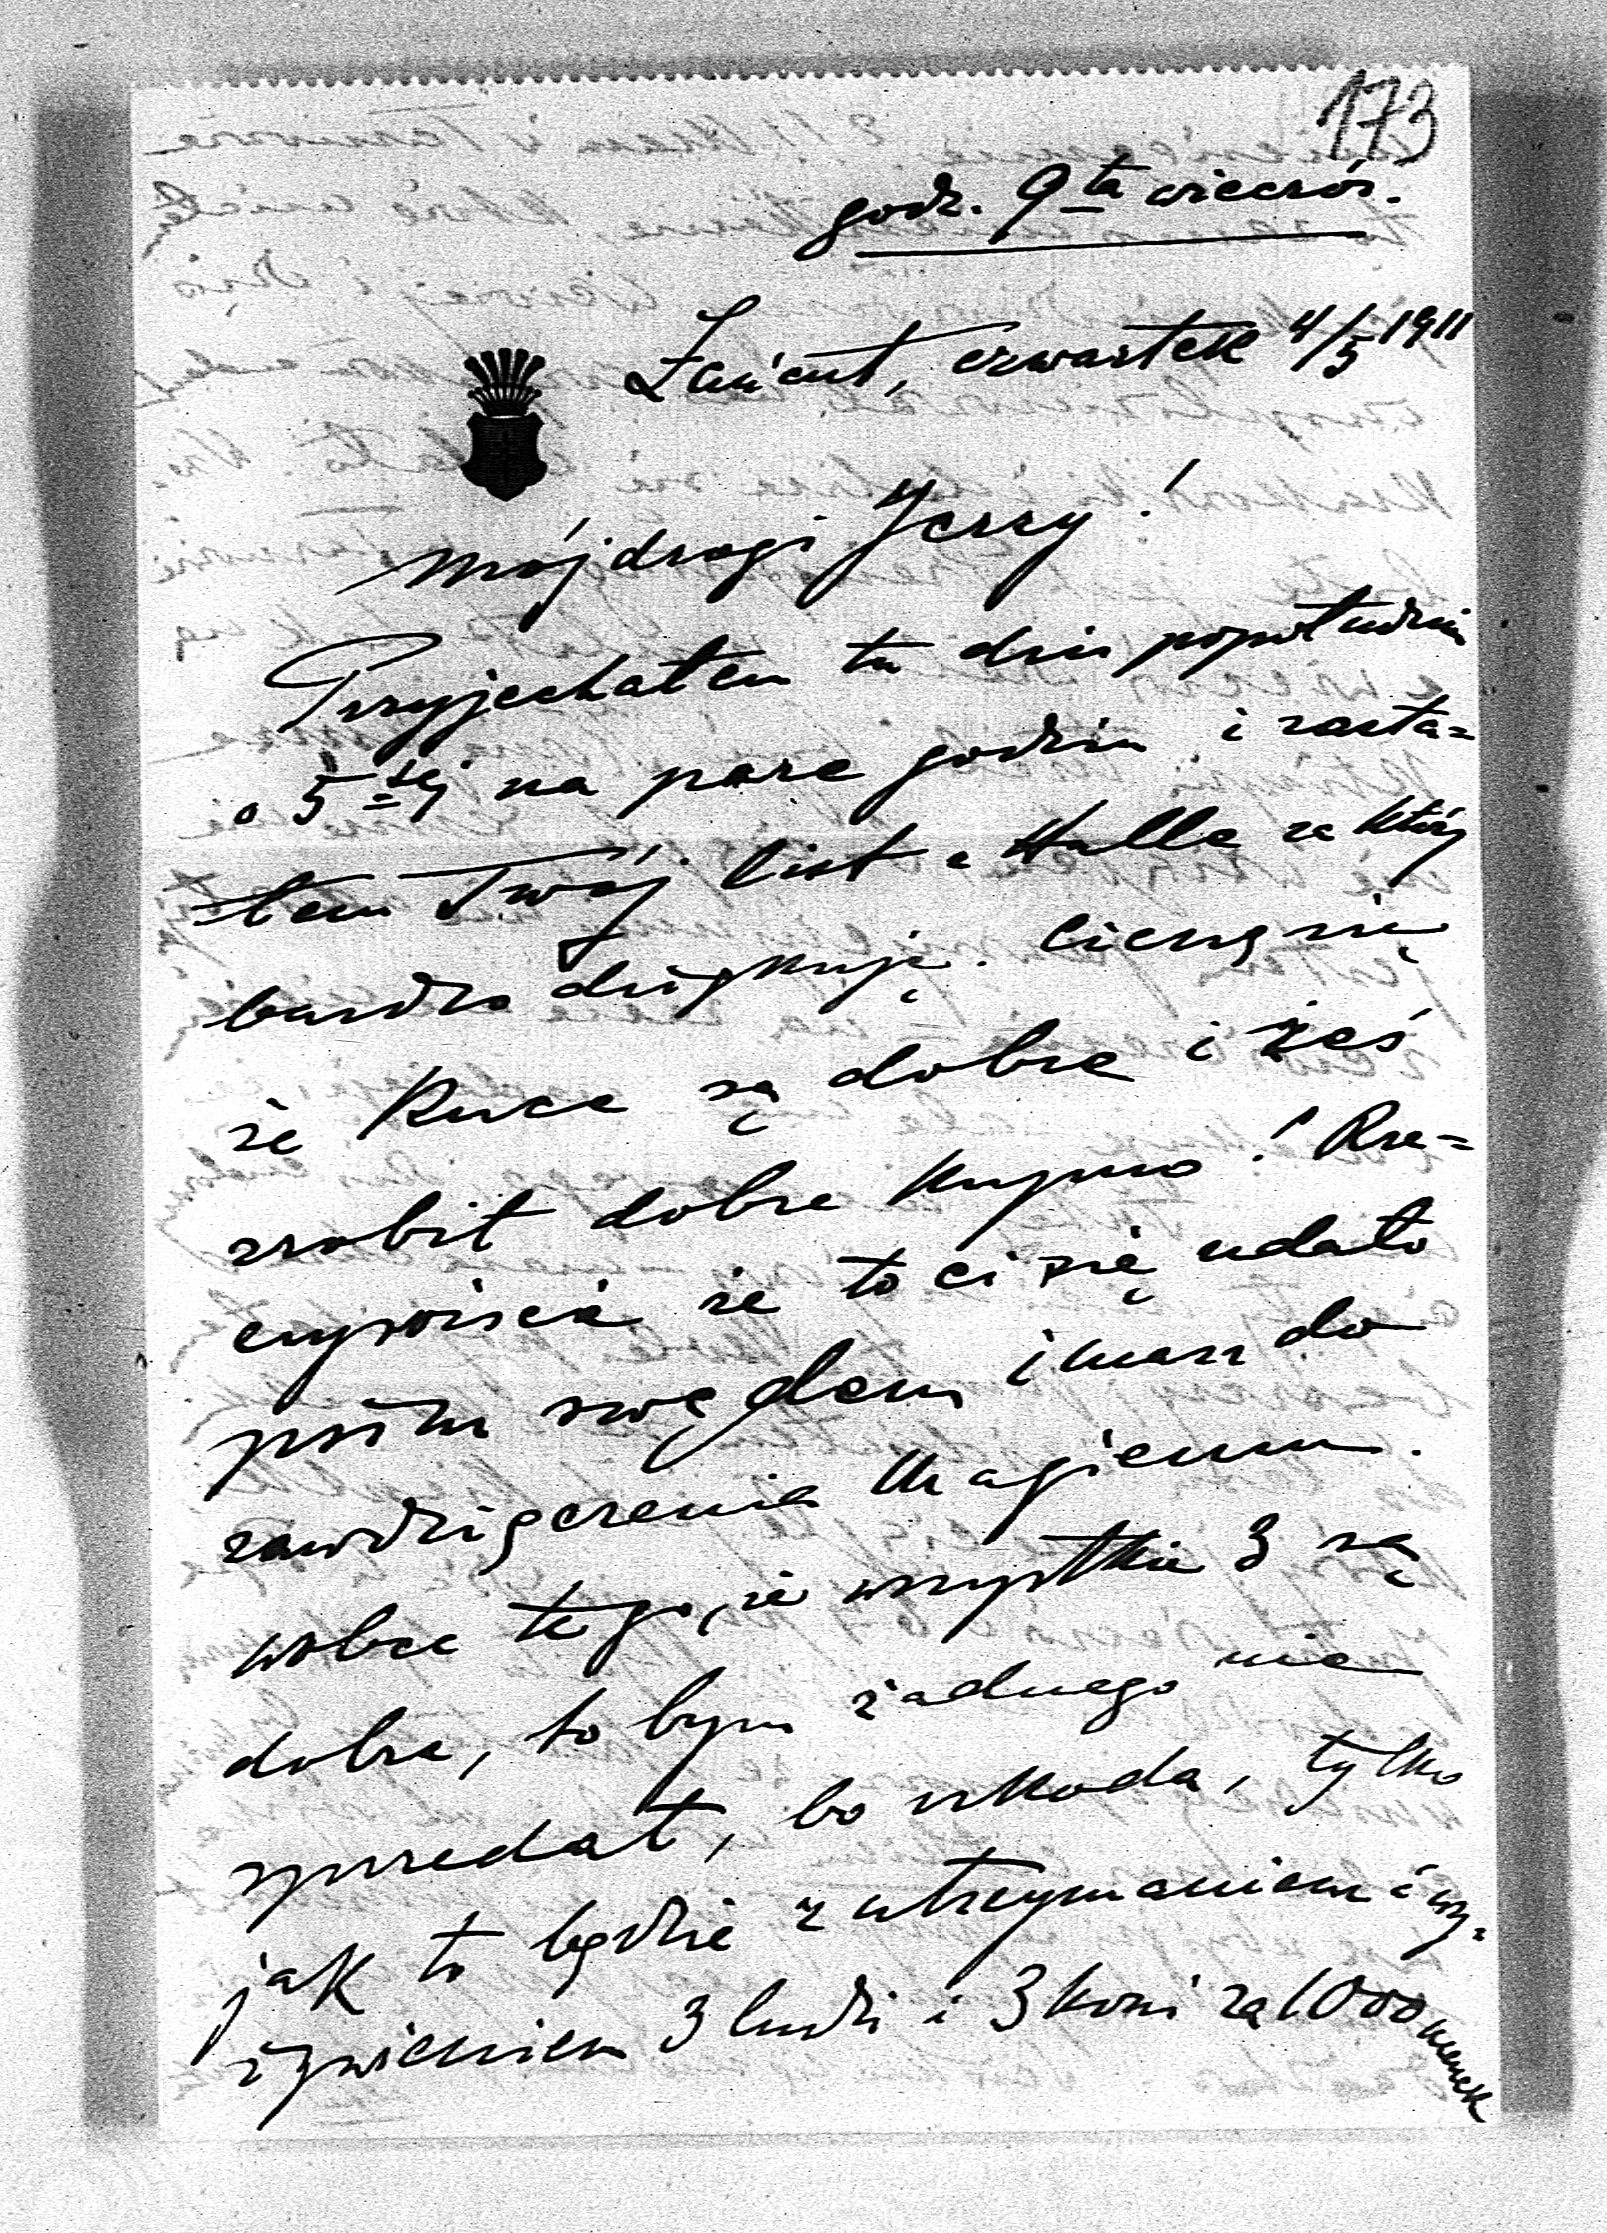 173
godz. 9ta wieczór.
Łańcut, czwartek 4/5 1911
Mój drogi Jerzy!
Przyjechałem tu dziś popołudniu
o 5-tej na parę godzin i zasta=
=łem Twój list z Halle za który
bardzo dziękuję. Cieszę się
że Kuce są dobre i żeś
zrobił dobre kupno! Rze=
czywiście że to ci się udało
pod tym względem i masz do
zawdzięczenia Magierem.
wobec tego, że wszystkie 3 są
dobre, to bym żadnego nie
sprzedał, bo szkoda, tylko
jak to będzie z utrzymaniem i wy-
żywieniem 3 ludzi i 3 koni za 1000 marek